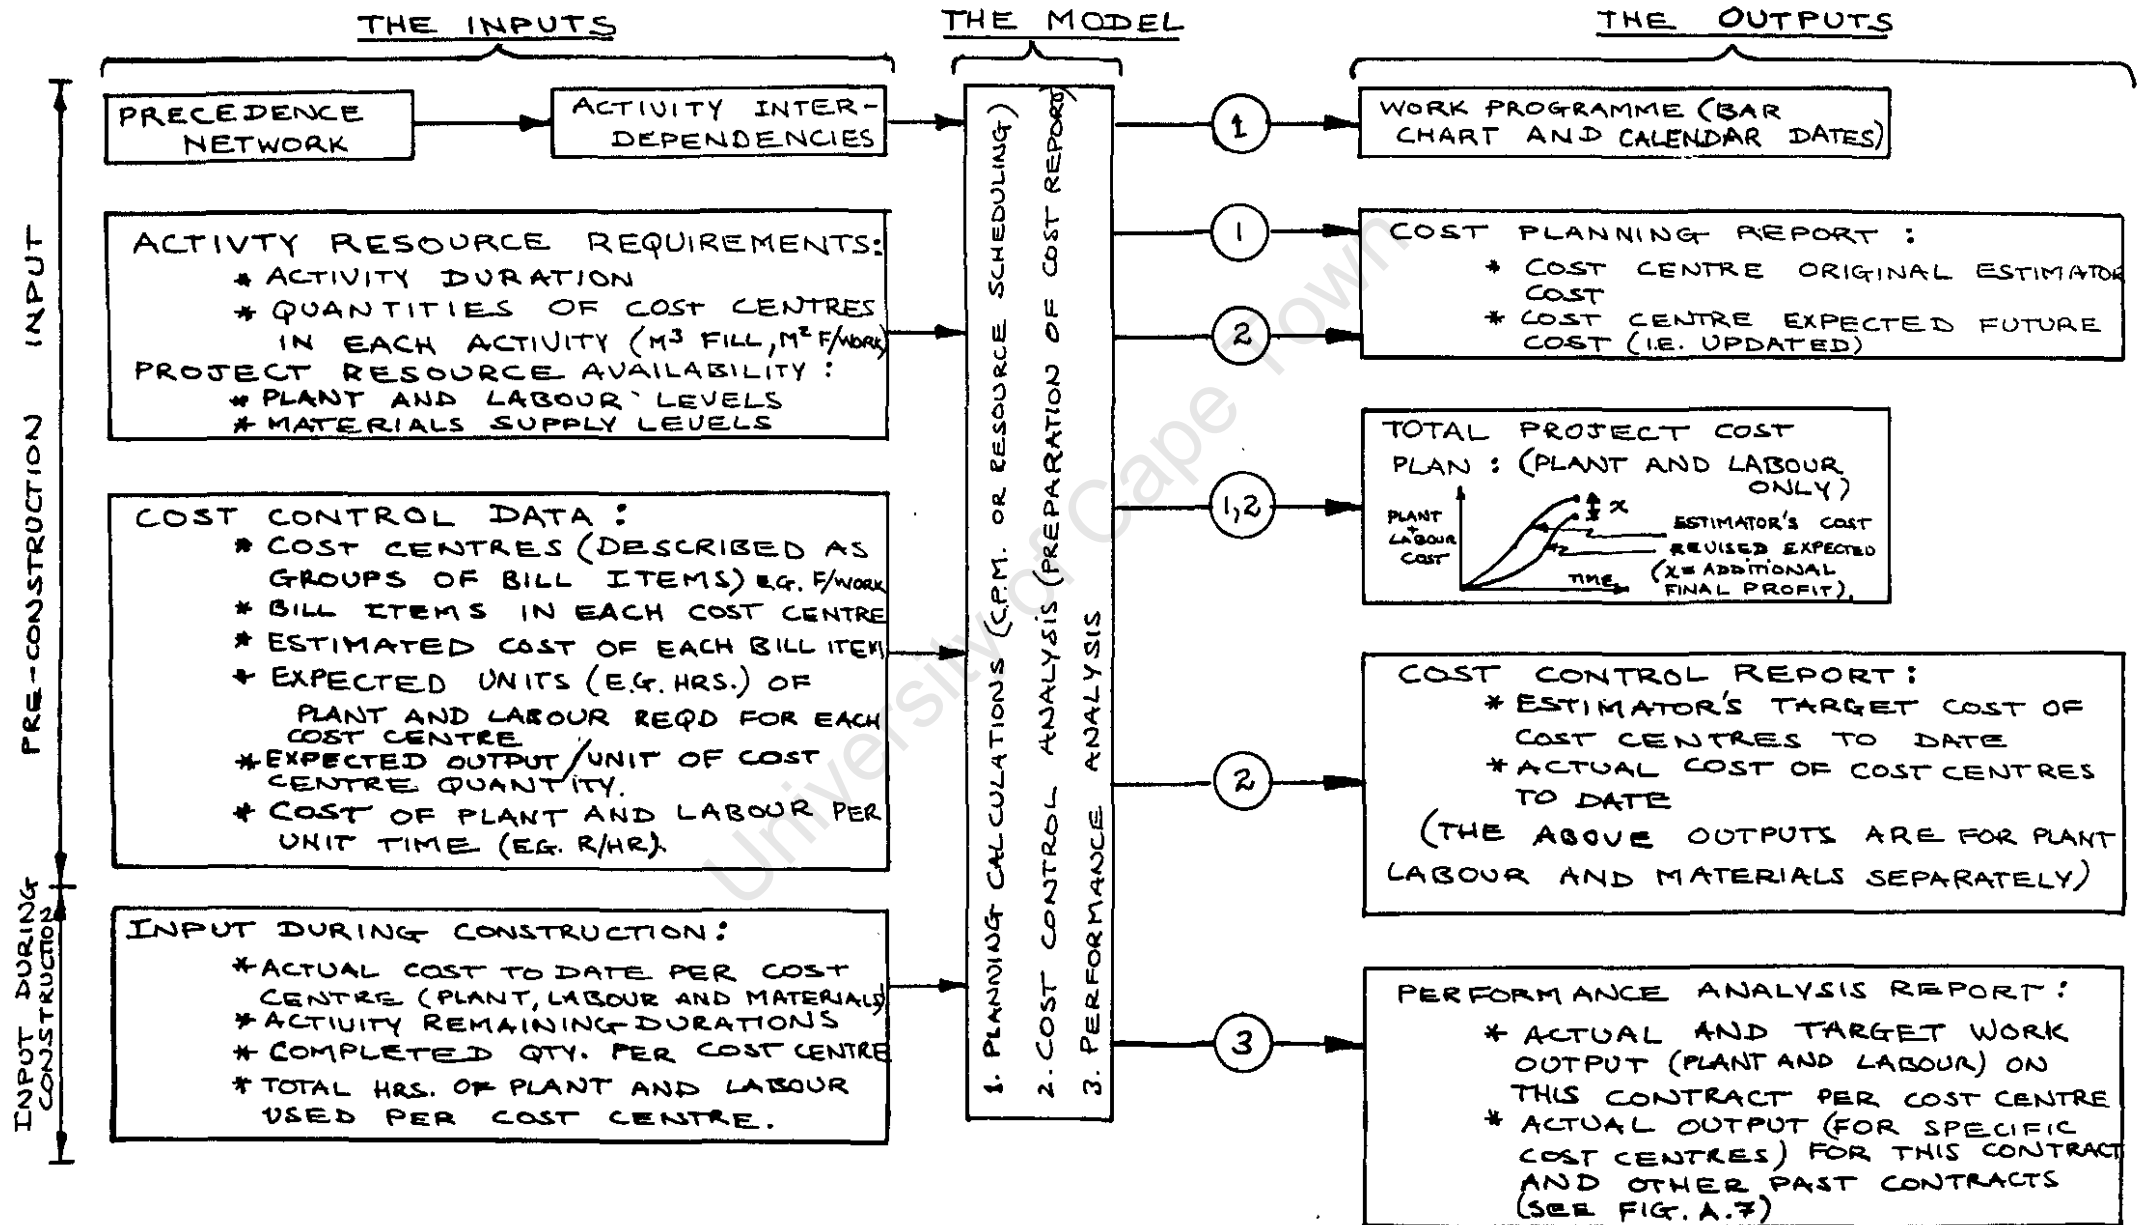 THE INPUTS
THE MODEL
THE OUTPUTS
PRE-CONSTRUCTION INPUT
INPUT DURING
CONSTRUCTION
PRECEDENCE
NETWORK
ACTIVITY INTER-
DEPENDENCIES
ACTIVTY RESOURCE REQUIREMENTS:
* ACTIVITY DURATION
* QUANTITIES OF COST CENTRES
IN EACH ACTIVITY (M³ FILL, M² F/WORK)
PROJECT RESOURCE AVAILABILITY :
* PLANT AND LABOUR LEVELS
* MATERIALS SUPPLY LEVELS
COST CONTROL DATA :
* COST CENTRES (DESCRIBED AS
GROUPS OF BILL ITEMS) E.G. F/WORK
* BILL ITEMS IN EACH COST CENTRE
* ESTIMATED COST OF EACH BILL ITEM
* EXPECTED UNITS (E.G. HRS.) OF
PLANT AND LABOUR REQD FOR EACH
COST CENTRE
* EXPECTED OUTPUT/UNIT OF COST
CENTRE QUANTITY.
* COST OF PLANT AND LABOUR PER
UNIT TIME (EG. R/HR).
INPUT DURING CONSTRUCTION:
* ACTUAL COST TO DATE PER COST
CENTRE (PLANT, LABOUR AND MATERIALS)
* ACTIVITY REMAINING DURATIONS
* COMPLETED QTY. PER COST CENTRE
* TOTAL HRS. OF PLANT AND LABOUR
USED PER COST CENTRE.
1. PLANNING CALCULATIONS (C.P.M. OR RESOURCE SCHEDULING)
2. COST CONTROL ANALYSIS (PREPARATION OF COST REPORT)
3. PERFORMANCE ANALYSIS
1
1
2
1,2
2
3
WORK PROGRAMME (BAR
CHART AND CALENDAR DATES)
COST PLANNING REPORT :
* COST CENTRE ORIGINAL ESTIMATOR
COST
* COST CENTRE EXPECTED FUTURE
COST (I.E. UPDATED)
TOTAL PROJECT COST
PLAN : (PLANT AND LABOUR
ONLY)
PLANT
+
LABOUR
COST
x
ESTIMATOR'S COST
REVISED EXPECTED
(X= ADDITIONAL
FINAL PROFIT).
TIME
COST CONTROL REPORT:
* ESTIMATOR'S TARGET COST OF
COST CENTRES TO DATE
* ACTUAL COST OF COST CENTRES
TO DATE
(THE ABOVE OUTPUTS ARE FOR PLANT
LABOUR AND MATERIALS SEPARATELY)
PERFORMANCE ANALYSIS REPORT:
* ACTUAL AND TARGET WORK
OUTPUT (PLANT AND LABOUR) ON
THIS CONTRACT PER COST CENTRE
* ACTUAL OUTPUT (FOR SPECIFIC
COST CENTRES) FOR THIS CONTRACT
AND OTHER PAST CONTRACTS
(SEE FIG. A.7)
University of Cape Town